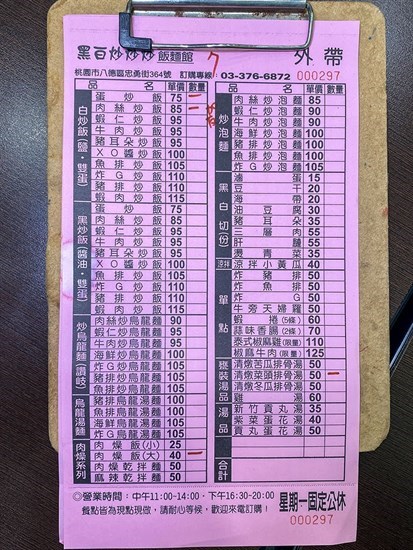 黑白炒炒炒飯麵館
7
外帶
桃園市八德區忠勇街364號 訂購專線:03-376-6872
000297
品名 單價 數量
白炒飯(鹽·雙蛋)
蛋炒飯 75
肉絲炒飯 85
蝦仁炒飯 95
牛肉炒飯 95
豬耳朵炒飯 95
XO醬炒飯 100
魚排炒飯 105
炸G炒飯 110
豬排炒飯 110
蝦肉炒飯 115
黑炒飯(醬油·雙蛋)
蛋炒飯 75
肉絲炒飯 85
蝦仁炒飯 95
牛肉炒飯 95
豬耳朵炒飯 95
XO醬炒飯 100
魚排炒飯 105
炸G炒飯 110
豬排炒飯 110
蝦肉炒飯 115
炒烏龍麵(讚岐)
肉絲炒烏龍麵 90
蝦仁炒烏龍麵 95
牛肉炒烏龍麵 95
海鮮炒烏龍麵 100
炸G炒烏龍麵 105
豬排炒烏龍麵 105
魚排炒烏龍麵 105
烏龍湯麵
豬排烏龍湯麵 105
魚排烏龍湯麵 105
海鮮烏龍湯麵 105
炸G烏龍湯麵 105
肉燥系列
肉燥飯(小) 25
肉燥飯(大) 40
肉燥乾拌麵 50
麻辣乾拌麵 50
品名 單價 數量
炒泡麵
肉絲炒泡麵 85
蝦仁炒泡麵 90
牛肉炒泡麵 90
海鮮炒泡麵 100
豬排炒泡麵 100
魚排炒泡麵 100
炸G炒泡麵 105
黑白切份
滷蛋 15
豆干 20
海帶 20
油豆腐 30
豬耳朵 35
三層肉 55
肝膶 55
燙青菜 35
涼拌
涼拌小黃瓜 40
單點
炸豬排 50
炸魚排 50
炸G 50
牛旁天婦羅 50
蝦捲(5條) 60
蒜味香腸(2條) 70
泰式椒麻雞(限量) 110
椒麻牛肉(限量) 125
甕裝湯品
清燉苦瓜排骨湯 50
清燉菜頭排骨湯 50
清燉冬瓜排骨湯 50
湯品
雞湯 60
新竹貢丸湯 35
紫菜蛋花湯 40
貢丸蛋花湯 50
合計
◎營業時間:中午11:00-14:00-下午16:30-20:00
餐點皆為現點現做,請耐心等候,歡迎來電訂購!
星期一固定公休
000297